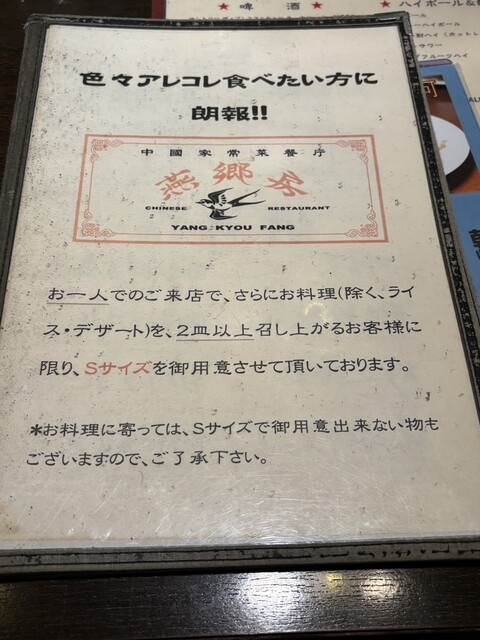 ★ 啤 酒 ★
★ ハイボール&
色々アレコレ食べたい方に
朗報!!
中國家常菜餐庁
燕郷房
CHINESE RESTAURANT
YANG KYOU FANG
お一人でのご来店で、さらにお料理(除く、ライ
ス・デザート)を、2皿以上召し上がるお客様に
限り、Sサイズを御用意させて頂いております。
*お料理に寄っては、Sサイズで御用意出来ない物も
ございますので、ご了承下さい。